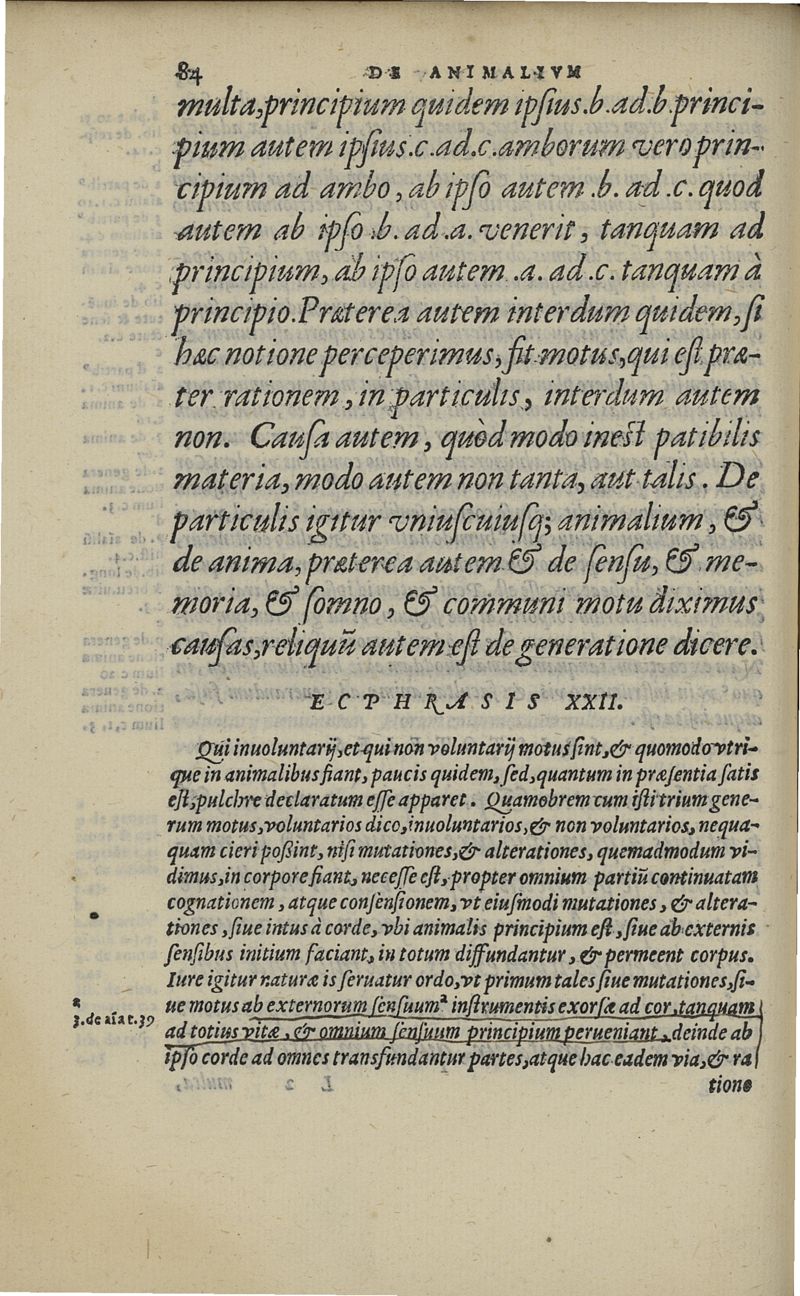 84 DE ANIMALIVM
multa, principium quidem ipſius .b. ad .b. princi-
pium autem ipſius .c. ad .c. amborum vero prin-
cipium ad ambo, ab ipſo autem .b. ad .c. quod
autem ab ipſo .b. ad .a. venerit, tanquam ad
principium, ab ipſo autem .a. ad .c. tanquam à
principio. Præterea autem interdum quidem, ſi
hæc notione perceperimus, fit motus, qui eſt præ-
ter rationem, in particulis, interdum autem
non. Cauſa autem, quòd modo ineſt patibilis
materia, modo autem non tanta, aut talis. De
particulis igitur vniuſcuiuſq; animalium, &
de anima, præterea autem & de ſenſu, & me-
moria, & ſomno, & communi motu diximus
cauſas, reliquũ autem eſt de generatione dicere.
ECPHRASIS XXII.
Qui inuoluntarij, et qui non voluntarij motus ſint, & quomodo vtri-
que in animalibus fiant, paucis quidem, ſed, quantum in præſentia ſatis
eſt, pulchre declaratum eſſe apparet. Quamobrem cum iſti trium gene-
rum motus, voluntarios dico, inuoluntarios, & non voluntarios, nequa-
quam cieri poßint, niſi mutationes, & alterationes, quemadmodum vi-
dimus, in corpore fiant, neceſſe eſt, propter omnium partiũ continuatam
cognationem, atque conſenſionem, vt eiuſmodi mutationes, & altera-
tiones, ſiue intus à corde, vbi animalis principium eſt, ſiue ab externis
ſenſibus initium faciant, in totum diffundantur, & permeent corpus.
Iure igitur naturæ is ſeruatur ordo, vt primum tales ſiue mutationes, ſi-
ue motus ab externorum ſenſuum ª inſtrumentis exorſæ ad cor, tanquam
ª
3. de aĩa t. 39
ad totius vitæ, & omnium ſenſuum principium perueniant, deinde ab
ipſo corde ad omnes transfundantur partes, atque hac eadem via, & ra
tione